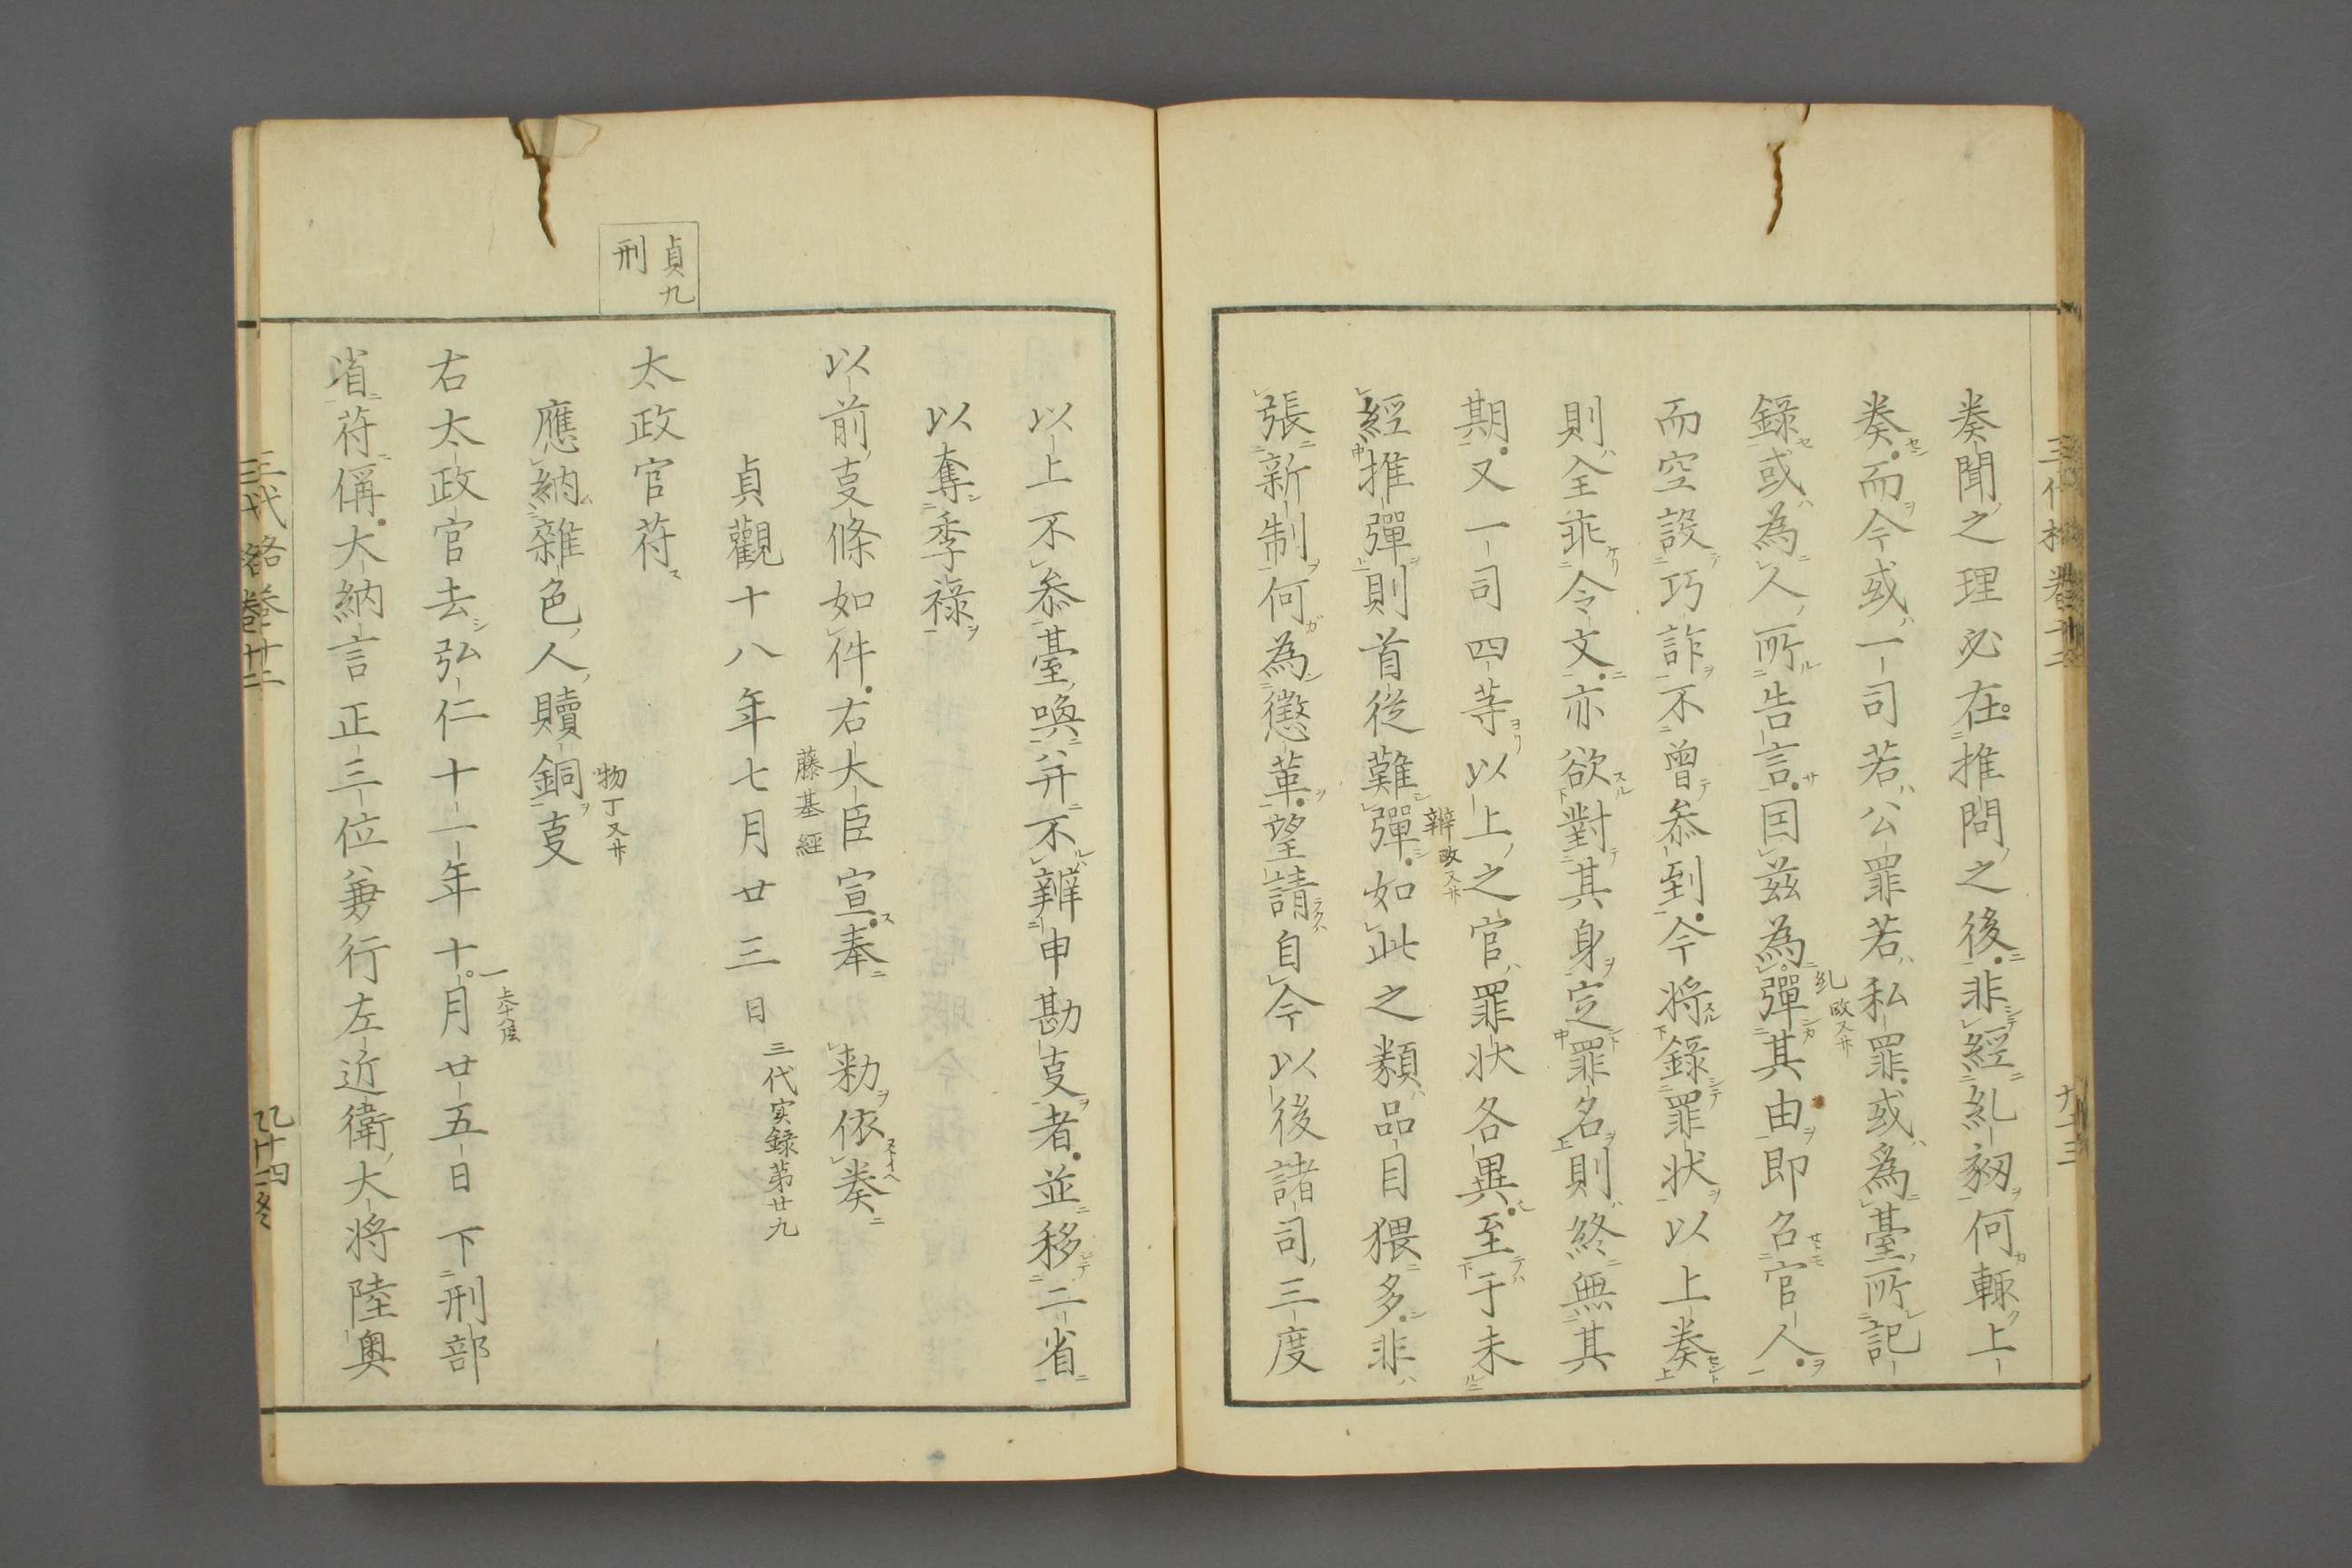 奏聞之理必在推問之後非經糺劾何輙上
奏而今或一司若公罪若私罪或爲臺所記
録或為人所告言囙茲為彈其由即名官人
糺 改又卄
而空設巧詐不曾叅到今将録罪状以上奏
則全乖令文亦欲對其身定罪名則終無其
期又一司四等以上之官罪状各異至于未
辨 改又卄
經推彈則首從難彈如此之類品目猥多非
張新制何為懲革望請自今以後諸司三度
以上不叅臺喚并不辨申勘㕝者並移二省
以奪季禄
以前㕝條如件右大臣宣奉 勑依奏
藤基經
貞觀十八年七月廿三日 三代実録第廿九
貞九
刑
太政官符
應納雜色人贖銅㕝
物丁又卄
右太政官去弘仁十一年十月廿五日下刑部
省符偁大納言正三位兼行左近衛大将陸奥